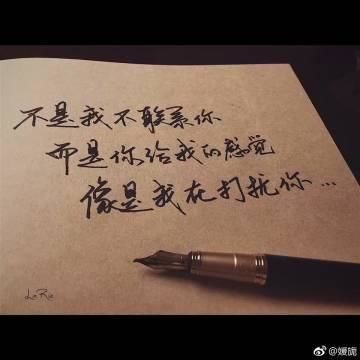 不是我不联系你
而是你给我的感觉
像是我在打扰你...
LaRa
@媛旎